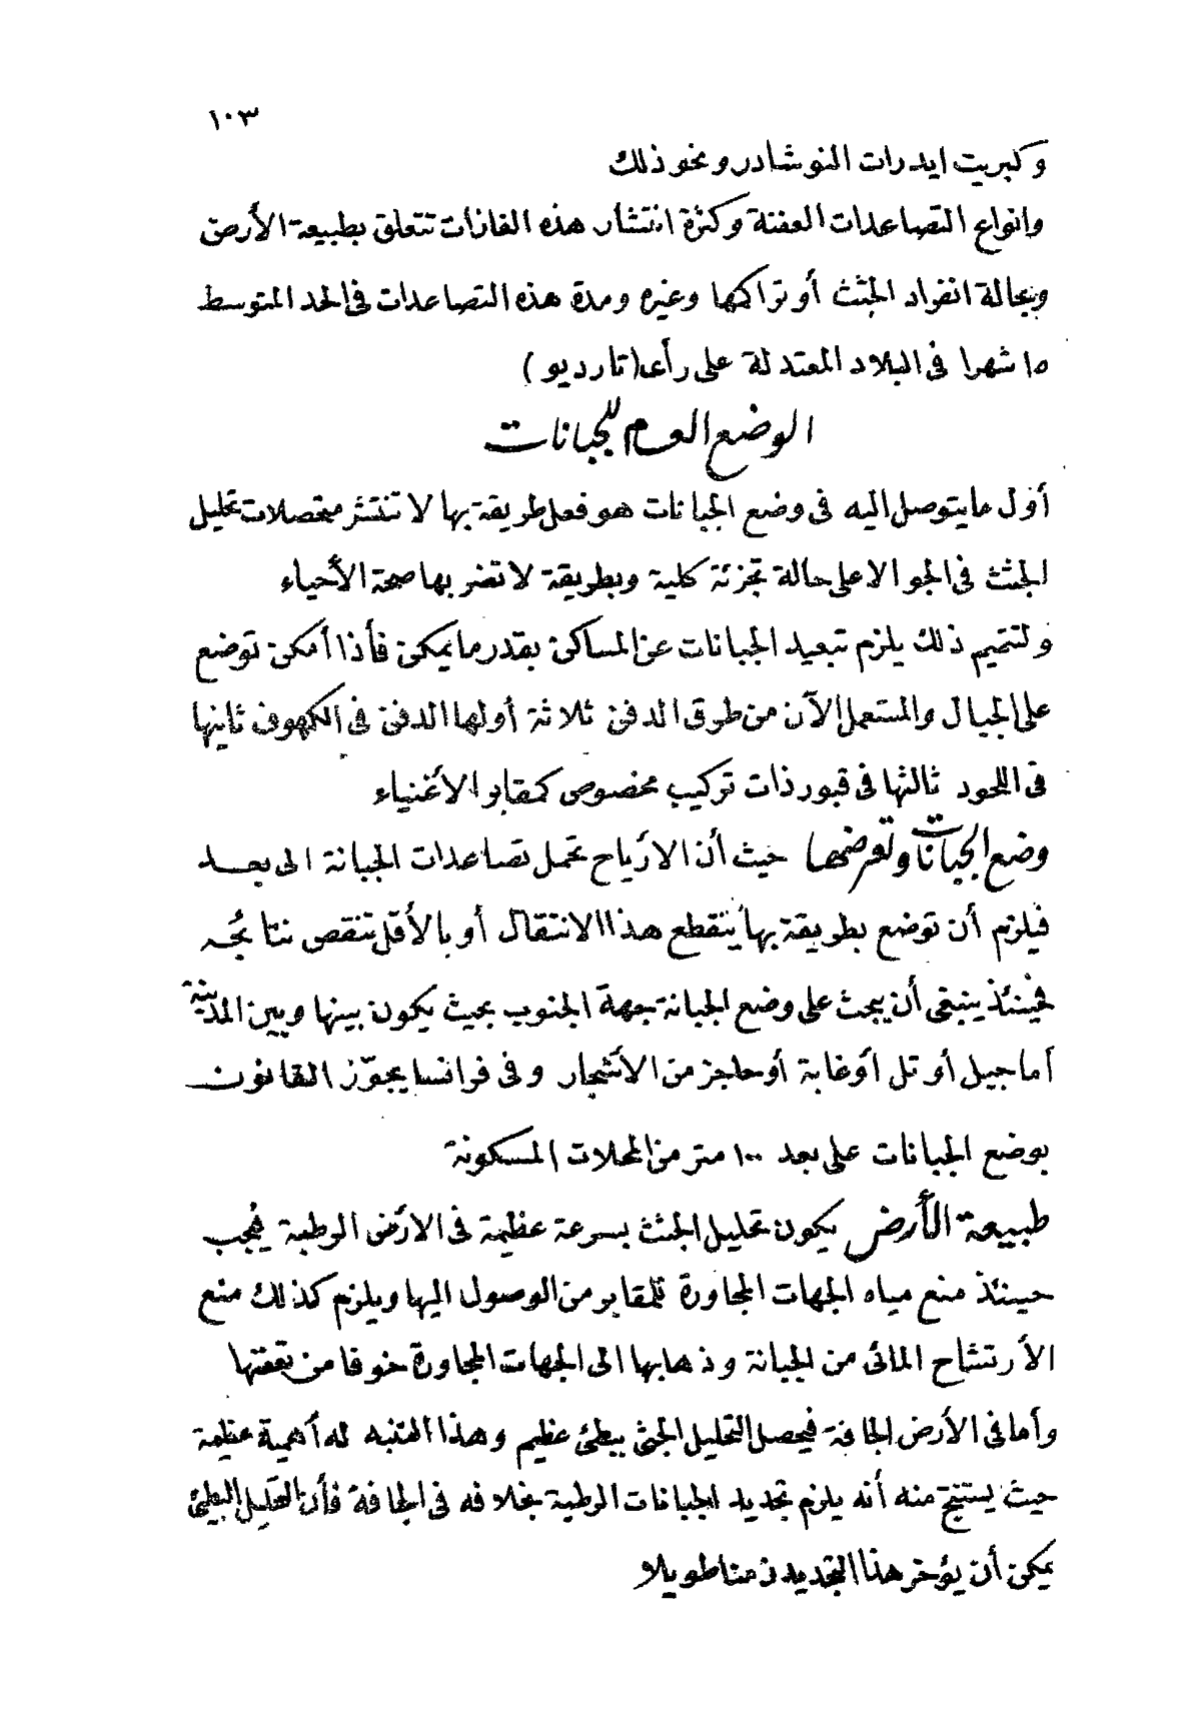 ١٠٣
وكبريت ايدرات النوشادر ونحو ذلك
وانواع التصاعدات العفنة وكثرة انتشار هذه الغازات تتعلق بطبيعة الأرض
وبحالة انفراد الجثث أو تراكمها وغيره ومدة هذه التصاعدات فى الحد المتوسط
١٥ شهرا فى البلاد المعتدلة على رأى (تارديو)
الوضع العام للجبانات
أول ما يتوصل اليه فى وضع الجبانات هو فعل طريقة بها لا تنتشر متحصلات تحليل
الجثث فى الجو الا على حالة تجزئة كلية وبطريقة لا تضر بها صحة الأحياء
ولتتميم ذلك يلزم تبعيد الجبانات عن المساكن بقدر ما يمكن فأذا أمكن توضع
على الجبال والمستعمل الآن من طرق الدفن ثلاثة أولها الدفن فى الكهوف ثانيها
فى اللحود ثالثها فى قبور ذات تركيب مخصوص كمقابر الأغنياء
وضع الجبانات وتعرضها حيث أن الأرياح تحمل تصاعدات الجبانة الى بعد
فيلزم أن توضع بطريقة بها ينقطع هذا الانتقال أو بالأقل تنقص نتائجه
فحينئذ ينبغى أن يبحث على وضع الجبانة جهة الجنوب بحيث يكون بينها وبين المدينة
أما جبل أو تل أو غابة أو حاجز من الأشجار وفى فرانسا يجوّز القانون
بوضع الجبانات على بعد ١٠٠ متر من المحلات المسكونة
طبيعة الأرض يكون تحليل الجثث بسرعة عظيمة فى الأرض الرطبة فيجب
حينئذ منع مياه الجهات المجاورة للمقابر من الوصول اليها ويلزم كذلك منع
الأرتشاح المائى من الجبانة وذهابها الى الجهات المجاورة خوفا من تعفنها
وأما فى الأرض الجافة فيحصل التحليل الجثى ببطئ عظيم وهذا التنبه له أهمية عظيمة
حيث يستنتج منه أنه يلزم تجديد الجبانات الرطبة بخلافه فى الجافة فأن التحليل البطئ
يمكن أن يؤخر هذا التجديد زمنا طويلا